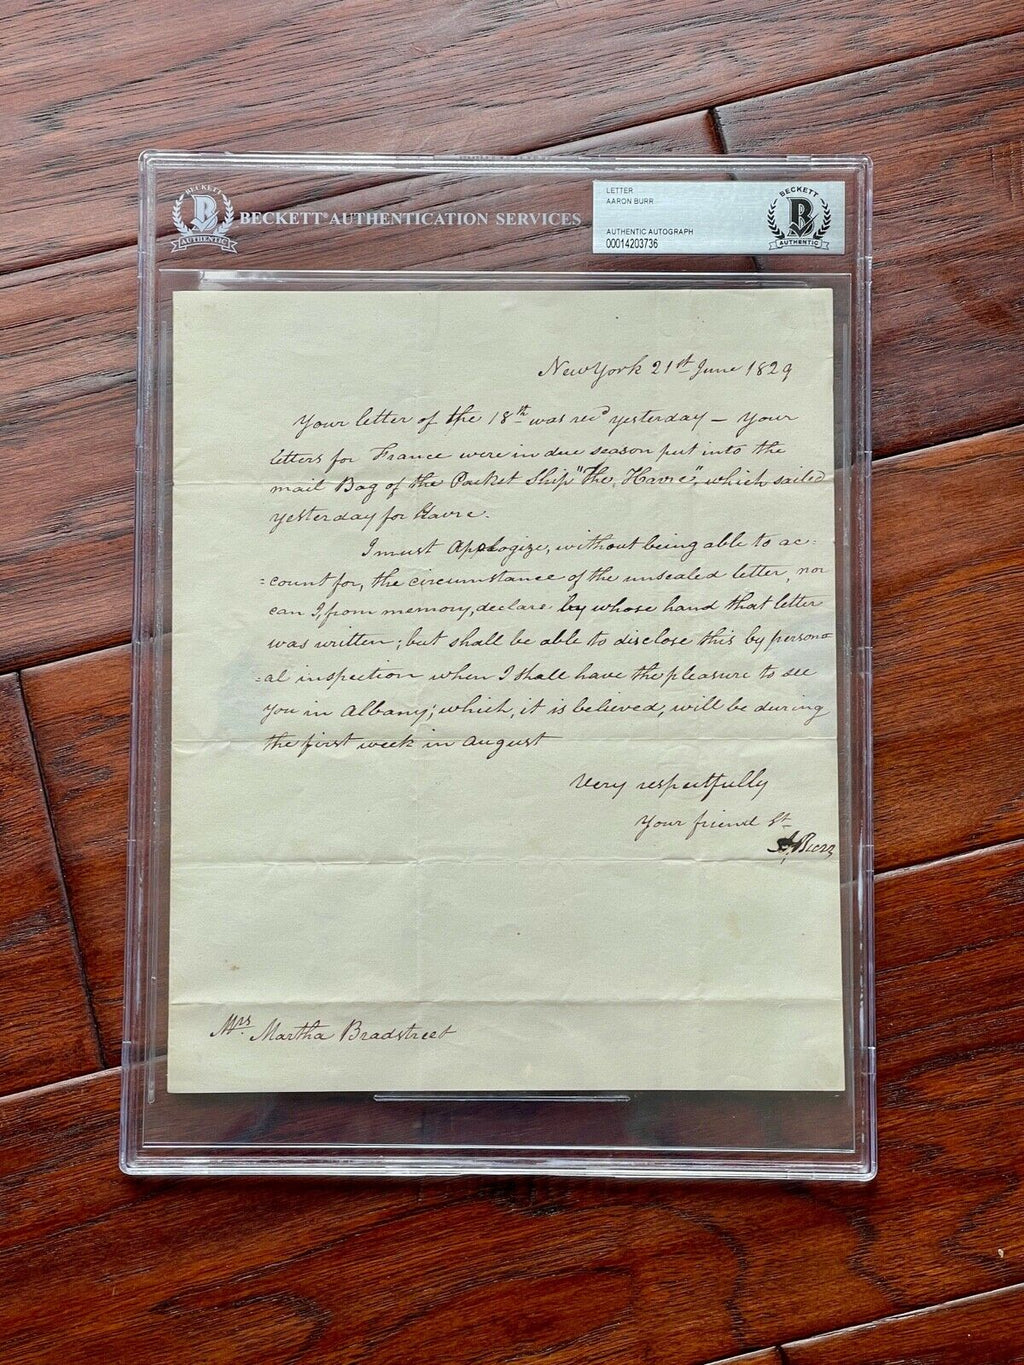 BECKETT
AUTHENTIC
BECKETT AUTHENTICATION SERVICES
LETTER
AARON BURR
AUTHENTIC AUTOGRAPH
00014203736
BECKETT
AUTHENTIC
New York 21st June 1829
Your letter of the 18th was recd yesterday — Your
letters for France were in due season put into the
mail Bag of the Packet Ship "The Havre", which sailed
yesterday for Havre.
I must Apologize, without being able to ac-
=count for, the circumstance of the unsealed letter, nor
can I, from memory, declare by whose hand that letter
was written; but shall be able to disclose this by person=
=al inspection when I shall have the pleasure to see
you in Albany; which, it is believed, will be during
the first week in August
Very respectfully
Your friend St
A. Burr
Mrs Martha Bradstreet